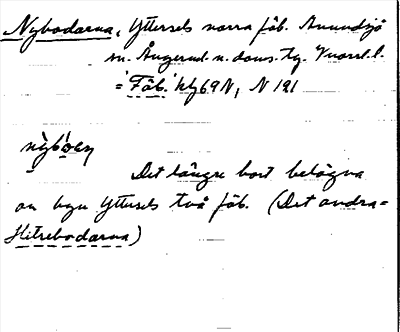 Nybodarna, Yttersels norra fäb. Anundsjö
sn. Ångerml. n. doms. tg.
= 'Fäb.' hg 69 N, N 121
nỳbo̱en
Det längre bort belägna
av byn Yttersels två fäb. (Det andra =
Hitrebodarna)